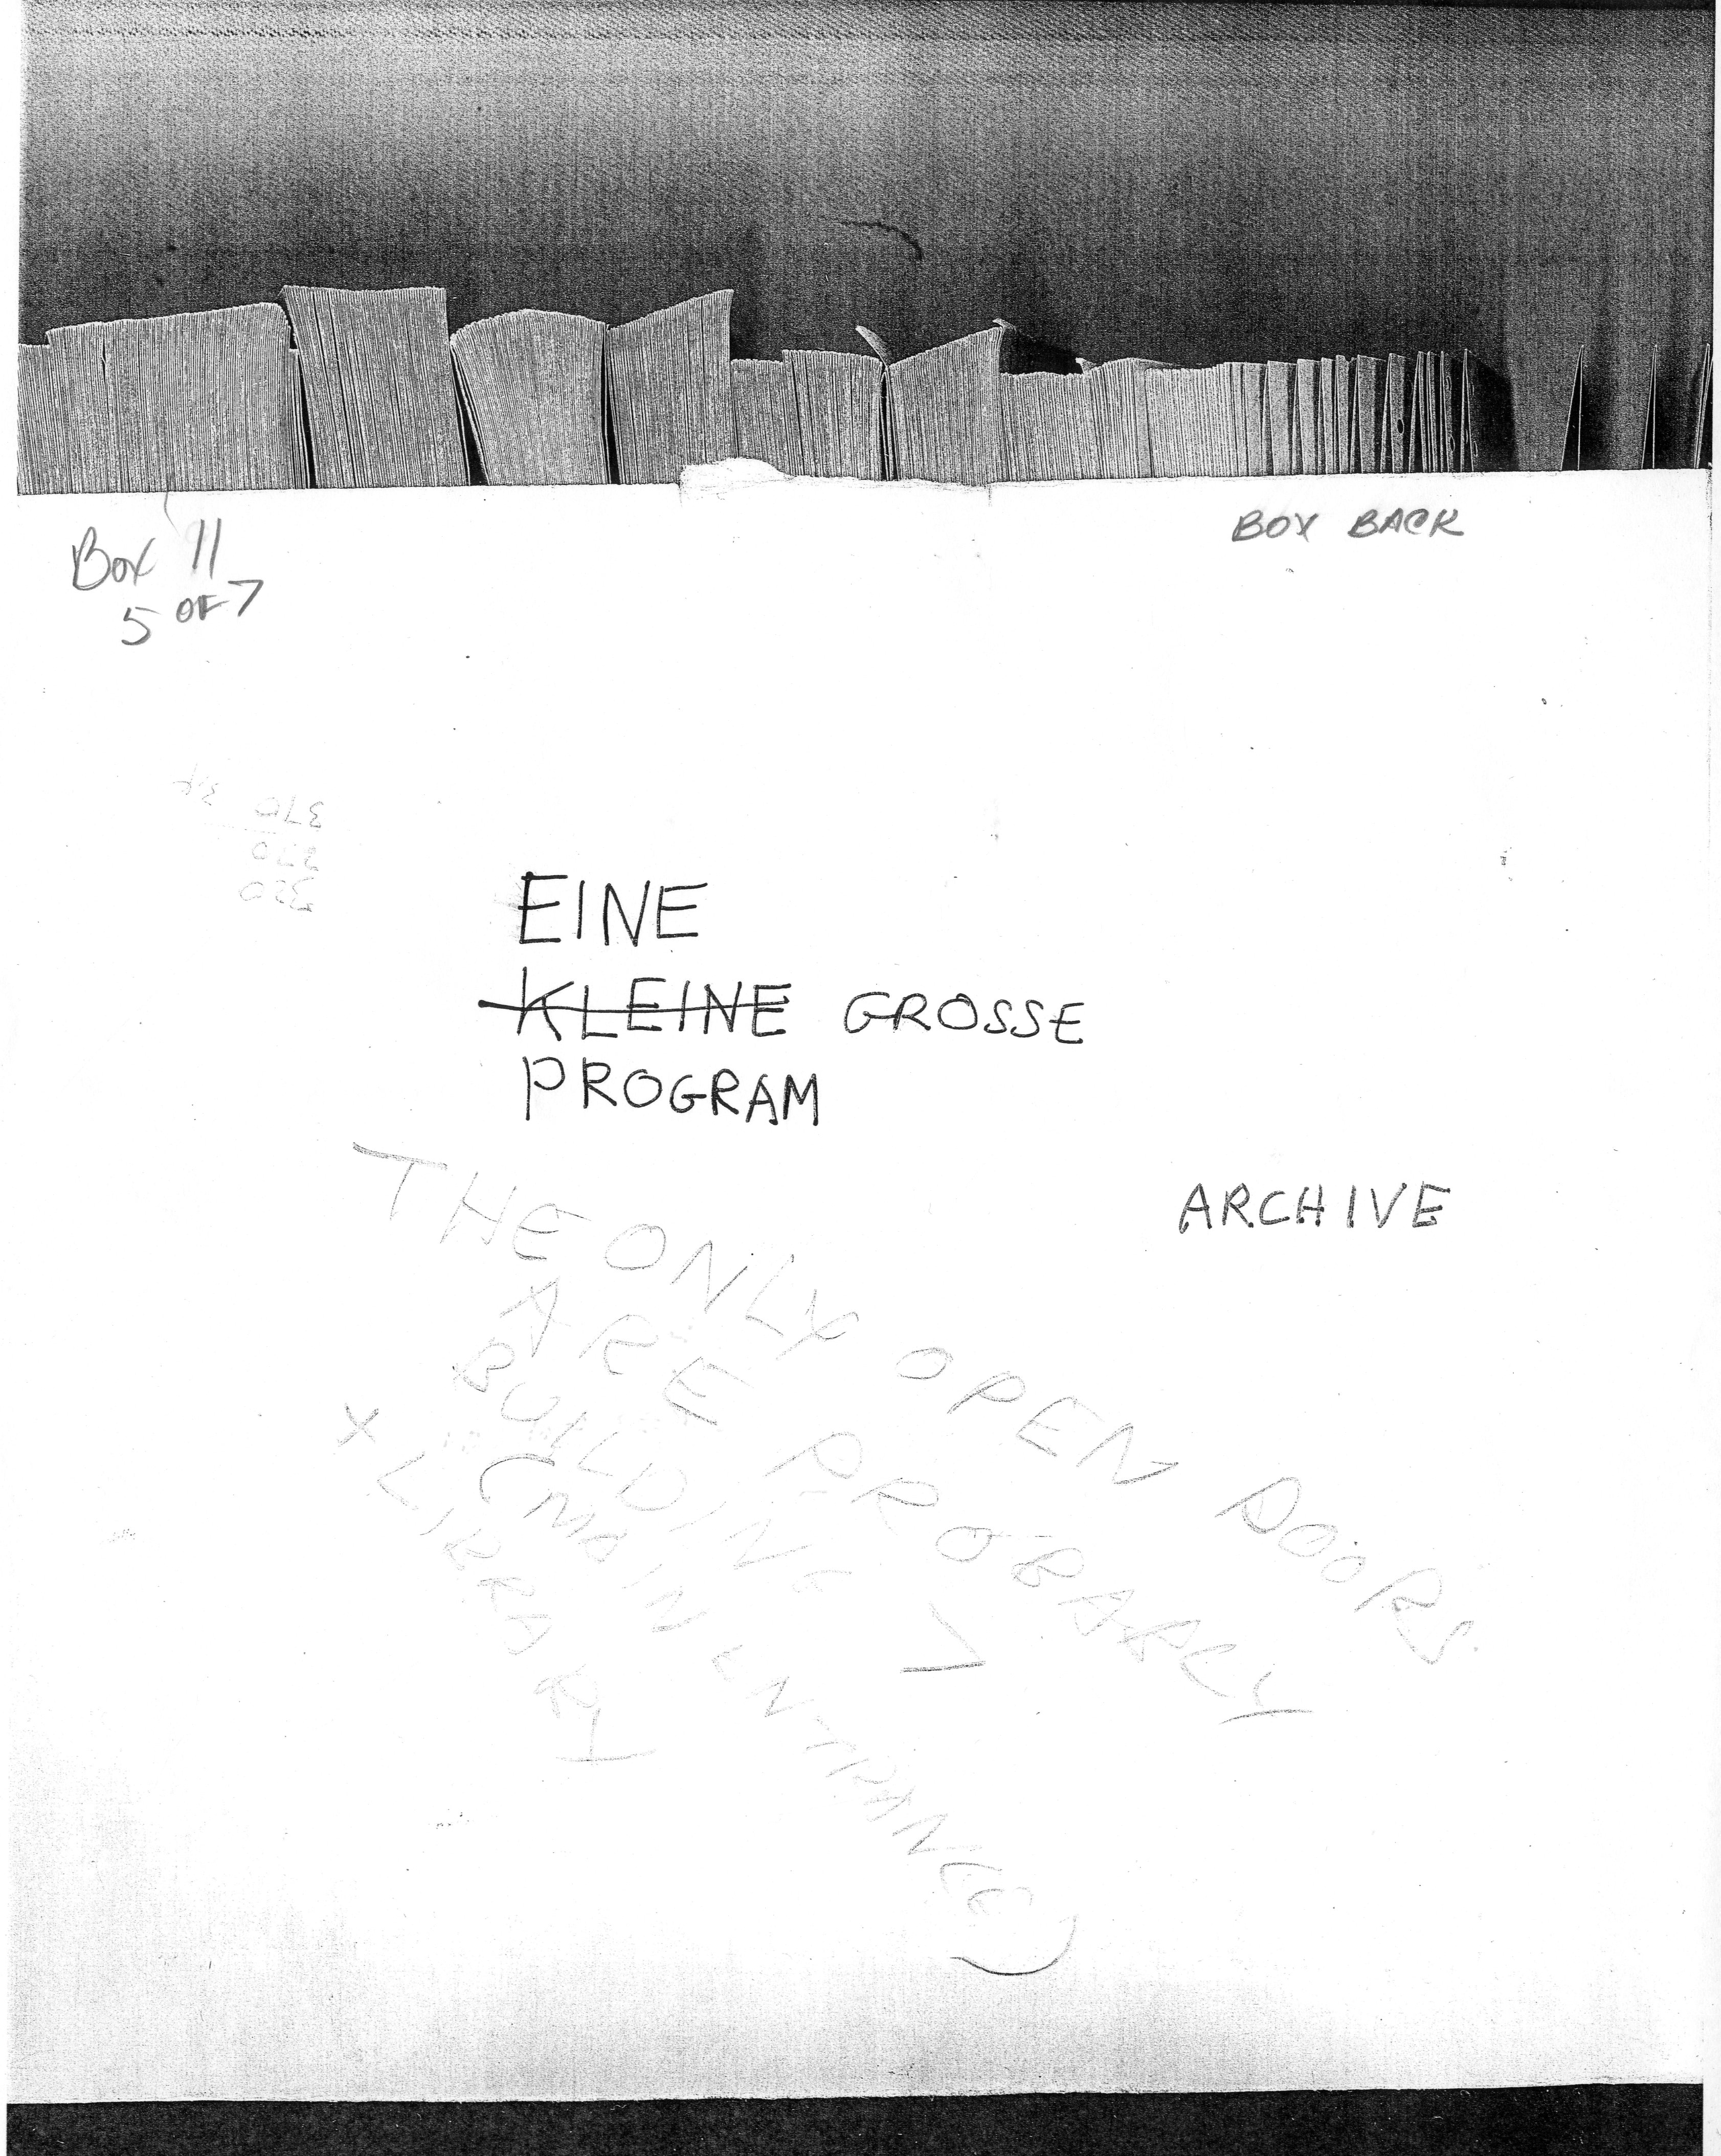 Box 11
5 OF 7
BOX BACK
370
EINE
KLEINE GROSSE
PROGRAM
ARCHIVE
THE ONLY OPEN DOORS
ARE PROBABLY
BUILDING 7
(MAIN ENTRANCE)
X LIBRARY